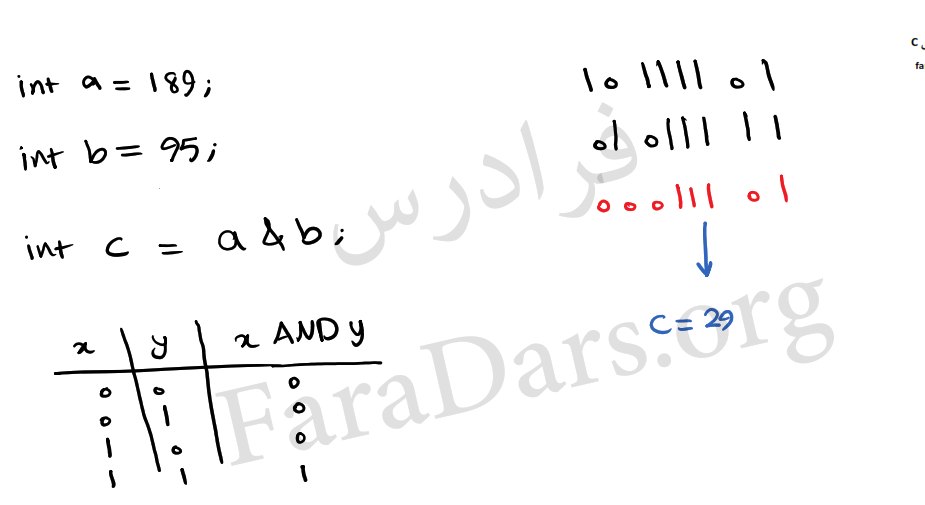 int a = 189;
int b = 95;
int c = a & b;
x y x AND y
0 0 0
0 1 0
1 0 0
1 1 1
10 1111 01
01 0111 11
000111 01
c = 29
فرادرس
FaraDars.org
C
fa